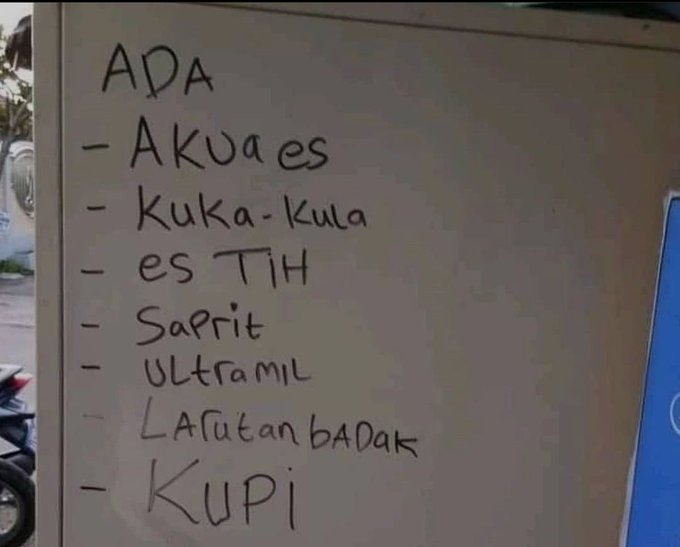 ADA
- AKUa es
- Kuka-Kula
- es TiH
- Saprit
- ULtramiL
- LArutan bADaK
- KUPi